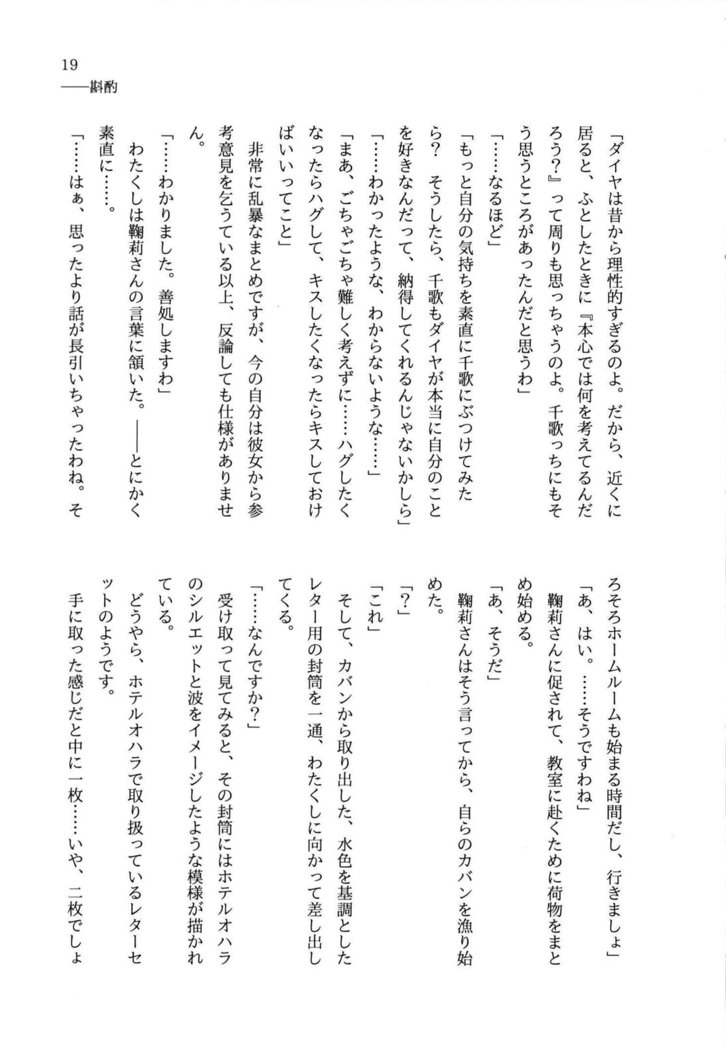 19
――斟酌
「ダイヤは昔から理性的すぎるのよ。だから、近くに
居ると、ふとしたときに『本心では何を考えてるんだ
ろう？』って周りも思っちゃうのよ。千歌っちにもそ
う思うところがあったんだと思うわ」
「……なるほど」
「もっと自分の気持ちを素直に千歌にぶつけてみた
ら？　そうしたら、千歌もダイヤが本当に自分のこと
を好きなんだって、納得してくれるんじゃないかしら」
「……わかったような、わからないような……」
「まあ、ごちゃごちゃ難しく考えずに……ハグしたく
なったらハグして、キスしたくなったらキスしておけ
ばいいってこと」
　非常に乱暴なまとめですが、今の自分は彼女から参
考意見を乞うている以上、反論しても仕様がありませ
ん。
「……わかりました。善処しますわ」
　わたくしは鞠莉さんの言葉に頷いた。――とにかく
素直に……。
「……はぁ、思ったより話が長引いちゃったわね。そ
ろそろホームルームも始まる時間だし、行きましょ」
「あ、はい。……そうですわね」
　鞠莉さんに促されて、教室に赴くために荷物をまと
め始める。
「あ、そうだ」
　鞠莉さんはそう言ってから、自らのカバンを漁り始
めた。
「？」
「これ」
　そして、カバンから取り出した、水色を基調とした
レター用の封筒を一通、わたくしに向かって差し出し
てくる。
「……なんですか？」
　受け取って見てみると、その封筒にはホテルオハラ
のシルエットと波をイメージしたような模様が描かれ
ている。
　どうやら、ホテルオハラで取り扱っているレターセ
ットのようです。
　手に取った感じだと中に一枚……いや、二枚でしょ